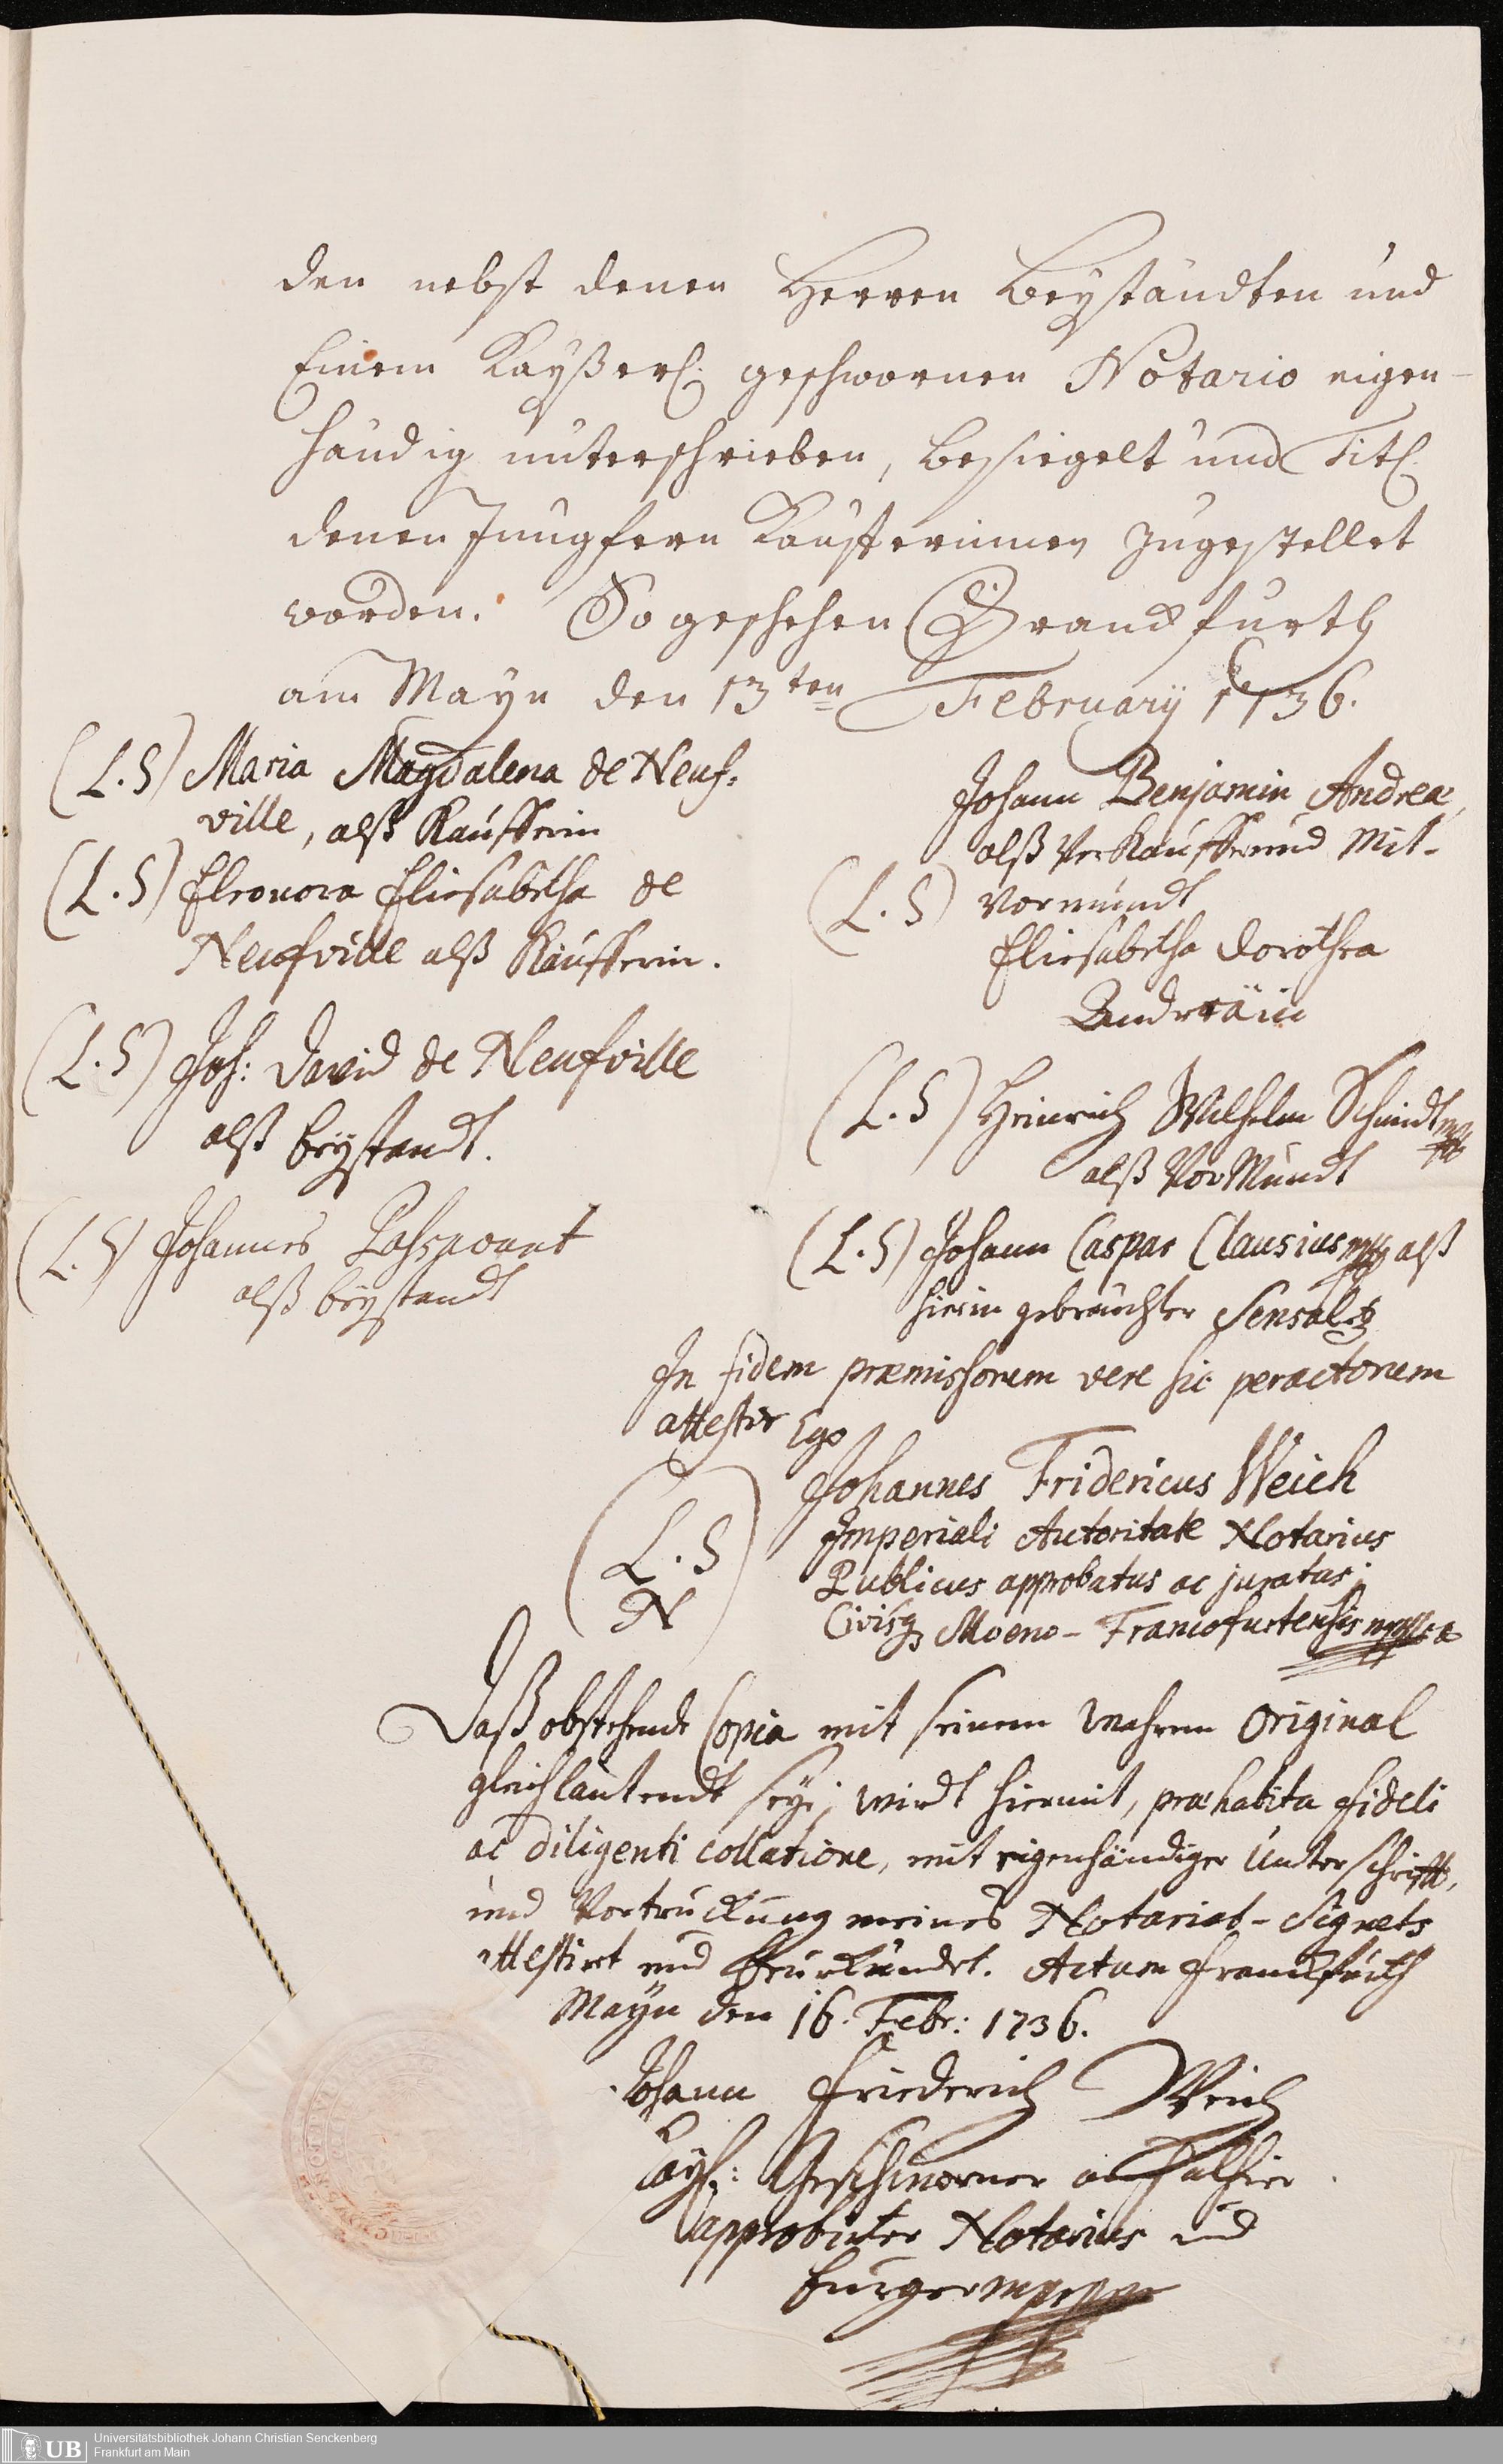 den nebst denen Herren Beyständten und
Einem Kayßerl. geschwornen Notario eigen-
händig unterschrieben, besiegelt und Titl.
denen Jungfern Kaufferinnen zugestellet
worden. So geschehen Franckfurth
am Mayn den 13ten February 1736.
(L.S) Maria Magdalena de Neuf-
ville, alß Kaufferin
(L.S) Eleonora Eliesabetha de
Neufville alß Käufferin.
(L.S) Joh: David de Neufville
alß beystandt.
(L.S) Johannes Passavant
alß beystandt
Johann Benjamin Andreæ,
alß Verkauffer und Mit-
(L.S) Vormundt
Eliesabetha Dorothea
Andreäin
(L.S) Heinrich Wilhelm Schmidt mpp
alß VorMundt
(L.S) Johann Caspar Clausius mpp alß
hierin gebrauchter Sensal
In fidem præmissorum vere sic peractorum
attestor Ego
Johannes Fridericus Weich
(L.S N) Imperiali Autoritate Notarius
Publicus approbatus ac juratus,
Civisq Moeno-Francofurtensis mppria
Daß obstehende Copia mit seinem wahren Original
gleichlautendt seye, wirdt hiermit, præhabita fideli
ac diligenti collatione, mit eigenhändiger Unterschrifft,
und Vortruckung meines Notariat-Signets
attestirt und beurkundet. Actum Franckfurth
Mayn den 16. Febr: 1736.
Johann Friederich Weich
Kayß: Geschworner auch alhier
approbirter Notarius und
burger mppria
UB Universitätsbibliothek Johann Christian Senckenberg
Frankfurt am Main